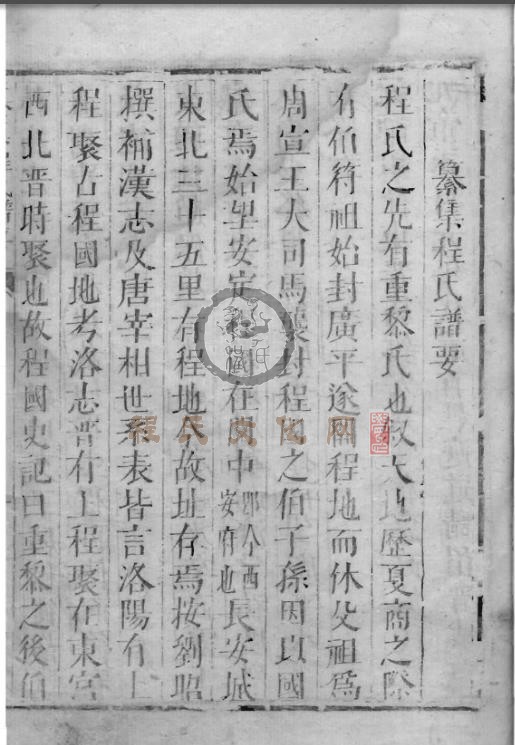 纂集程氏譜要
程氏之先有重黎氏也叙天地歷夏商之際
有伯符祖始封廣平遂國程地而休父祖爲
周宣王大司馬襲封程國之伯子孫因以國
氏焉始望安定程國在關中即今西安府也長安城
東北三十五里有程地今故址存焉按劉昭
撰補漢志及唐宰相世系表皆言洛陽有上
程聚占程國地考洛志晋有上程聚在東宮
西北晋時聚也故程國史記曰重黎之後伯
程氏文化网